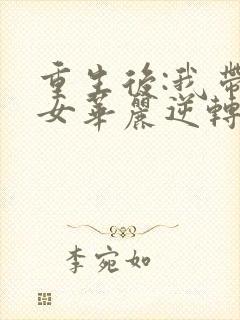 重生後:我帶
女華麗逆轉
李宛如